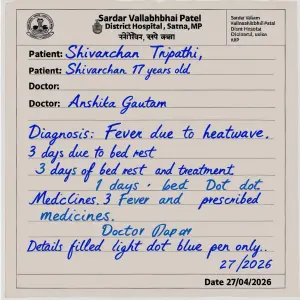 Sardar Vallabhbhai Patel
District Hospital, Satna, MP
Patient: Shivarchan Tripathi,
Patient: Shivarchan 17 years old
Doctor:
Doctor: Anshika Gautam
Diagnosis: Fever due to heatwave.
3 days due to bed rest
3 days of bed rest and treatment
1 days · bed Dot dot
Medclines. 3 Fever and prescribed
medicines.
Doctor Papar
Details filled light dot blue pen only..
27/2026
Date 27/04/2026